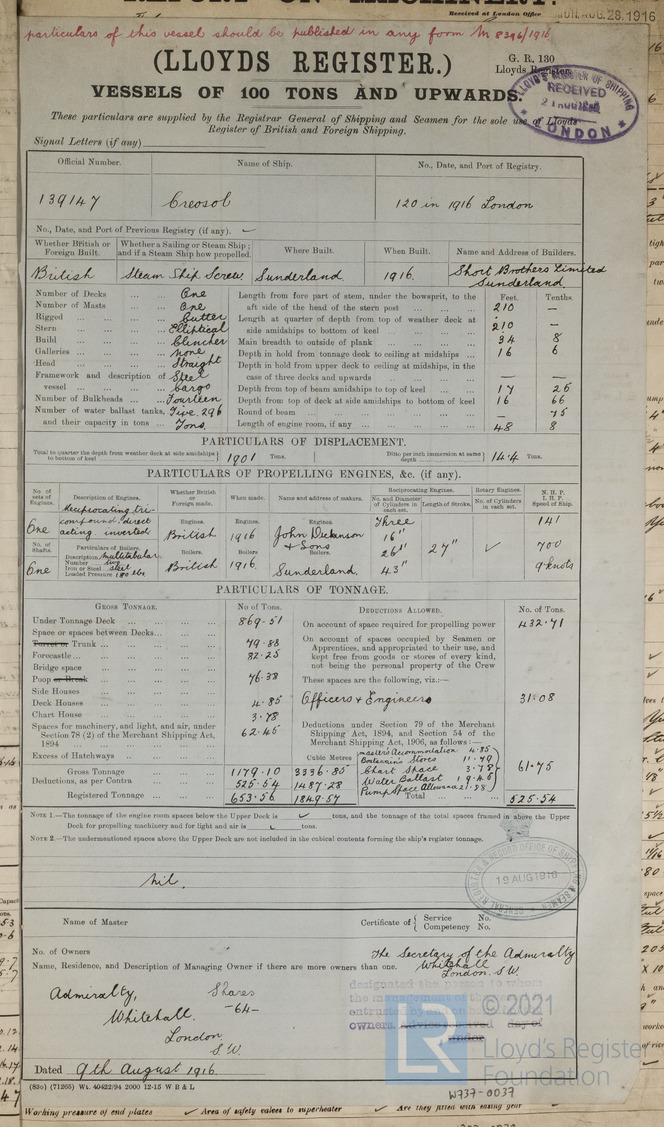 REPORT ON MACHINERY.
Received at London Office MON. AUG. 28. 1916
particulars of this vessel should be published in any form M 8396/1916
(LLOYDS REGISTER.)
G. R. 130
Lloyds Register.
VESSELS OF 100 TONS AND UPWARDS.
LLOYD'S REGISTER OF SHIPPING
RECEIVED
LONDON
These particulars are supplied by the Registrar General of Shipping and Seamen for the sole use of Lloyds
Register of British and Foreign Shipping.
Signal Letters (if any)
Official Number. Name of Ship. No., Date, and Port of Registry.
139147 Creosol 120 in 1916 London
No., Date, and Port of Previous Registry (if any).
Whether British or Foreign Built. Whether a Sailing or Steam Ship; and if a Steam Ship how propelled. Where Built. When Built. Name and Address of Builders.
British Steam Ship Screw Sunderland. 1916. Short Brothers Limited
Sunderland
Number of Decks One
Number of Masts One
Rigged Cutter
Stern Elliptical
Build Clincher
Galleries None
Head Straight
Framework and description of vessel Steel Cargo
Number of Bulkheads Fourteen
Number of water ballast tanks, and their capacity in tons Five. 296 Tons.
Feet. Tenths.
Length from fore part of stem, under the bowsprit, to the aft side of the head of the stern post 210 —
Length at quarter of depth from top of weather deck at side amidships to bottom of keel 210 —
Main breadth to outside of plank 34 8
Depth in hold from tonnage deck to ceiling at midships 16 6
Depth in hold from upper deck to ceiling at midships, in the case of three decks and upwards — —
Depth from top of beam amidships to top of keel 17 26
Depth from top of deck at side amidships to bottom of keel 16 66
Round of beam — 75
Length of engine room, if any 48 8
PARTICULARS OF DISPLACEMENT.
Total to quarter the depth from weather deck at side amidships to bottom of keel 1901 Tons. Ditto per inch immersion at same depth 14.4 Tons.
PARTICULARS OF PROPELLING ENGINES, &c. (if any).
No. of sets of Engines. Description of Engines. Whether British or Foreign made. When made. Name and address of makers. Reciprocating Engines. Rotary Engines. N. H. P. I. H. P. Speed of Ship.
No. and Diameter of Cylinders in each set. Length of Stroke. No. of Cylinders in each set.
One Reciprocating tri-compound direct acting inverted Engines. British Engines. 1916 Engines. John Dickinson & Sons Three 16" 26½" 43" 27" 141
700
9 knots
No. of Shafts. Particulars of Boilers. Boilers. Boilers Boilers.
One Description Multitubular
Number Two
Iron or Steel Steel
Loaded Pressure 180 lbs. British 1916. Sunderland.
PARTICULARS OF TONNAGE.
GROSS TONNAGE. No of Tons. DEDUCTIONS ALLOWED. No. of Tons.
Under Tonnage Deck 869.51
Space or spaces between Decks
Turret or Trunk 79.88
Forecastle 82.25
Bridge space
Poop or Break 76.38
Side Houses
Deck Houses 4.85
Chart House 3.78
Spaces for machinery, and light, and air, under Section 78 (2) of the Merchant Shipping Act, 1894 62.45
Excess of Hatchways
Cubic Metres
Gross Tonnage 1179.10 3336.85
Deductions, as per Contra 525.54 1487.28
Registered Tonnage 653.56 1849.57
On account of space required for propelling power 432.71
On account of spaces occupied by Seamen or Apprentices, and appropriated to their use, and kept free from goods or stores of every kind, not being the personal property of the Crew
These spaces are the following, viz.:—
Officers & Engineers 31.08
Deductions under Section 79 of the Merchant Shipping Act, 1894, and Section 54 of the Merchant Shipping Act, 1906, as follows:—
Master's Accommodation 4.85
Boatswain's Stores 11.79
Chart Space 3.78
Water Ballast 19.45
Pump Space Allowance 21.88
61.75
Total 525.54
NOTE 1.—The tonnage of the engine room spaces below the Upper Deck is tons, and the tonnage of the total spaces framed in above the Upper
Deck for propelling machinery and for light and air is tons.
NOTE 2.—The undermentioned spaces above the Upper Deck are not included in the cubical contents forming the ship's register tonnage.
nil.
19 AUG 1916
Name of Master Certificate of Service No.
Competency No.
No. of Owners
Name, Residence, and Description of Managing Owner if there are more owners than one.
The Secretary of the Admiralty
Whitehall
London S.W.
Admiralty, Shares
Whitehall. -64-
London
S.W.
designated the person to whom
the
entrusted by
owners. Advice received day of
under
Dated 9th August 1916.
(830) (71265) Wt. 40422/94 2000 12-15 W B & L
© 2021
LR Lloyd's Register
Foundation
W737-0037
Working pressure of end plates Area of safety valves to superheater Are they fitted with easing gear